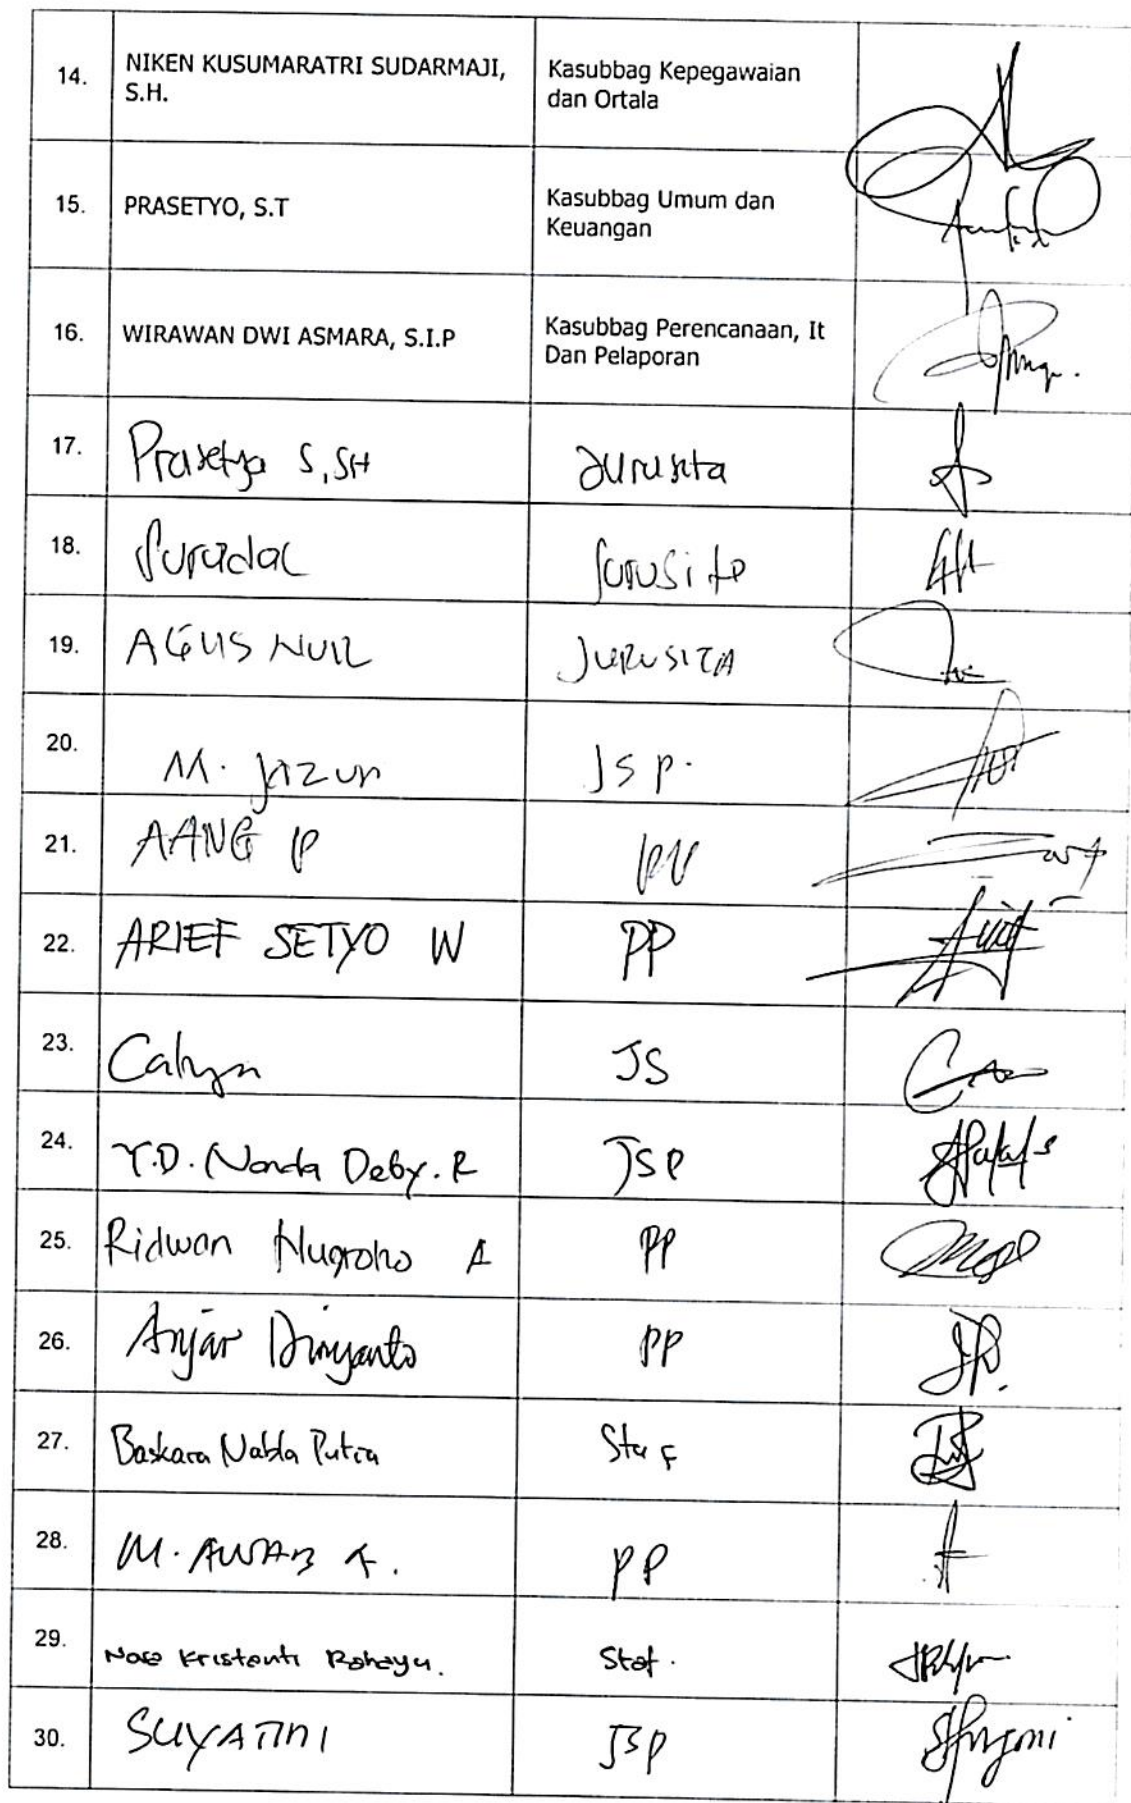 14. NIKEN KUSUMARATRI SUDARMAJI, Kasubbag Kepegawaian
S.H. dan Ortala
15. PRASETYO, S.T Kasubbag Umum dan
Keuangan
16. WIRAWAN DWI ASMARA, S.I.P Kasubbag Perencanaan, It
Dan Pelaporan
17. Prasetyo S, SH Jurusita
18. Jurusita
19. AGUS NUR JURUSITA
20. M. Jazun JSP.
21. AANG P
22. ARIEF SETYO W PP
23. Cahya JS
24. Y.D. Nanda Deby. R JSP
25. Ridwan Nugroho A PP
26. Anjar PP
27. Baskara Nabla Putra Staf
28. M. AWAB A. PP
29. Kristanti Rahayu. Staf.
30. SUYATMI JSP